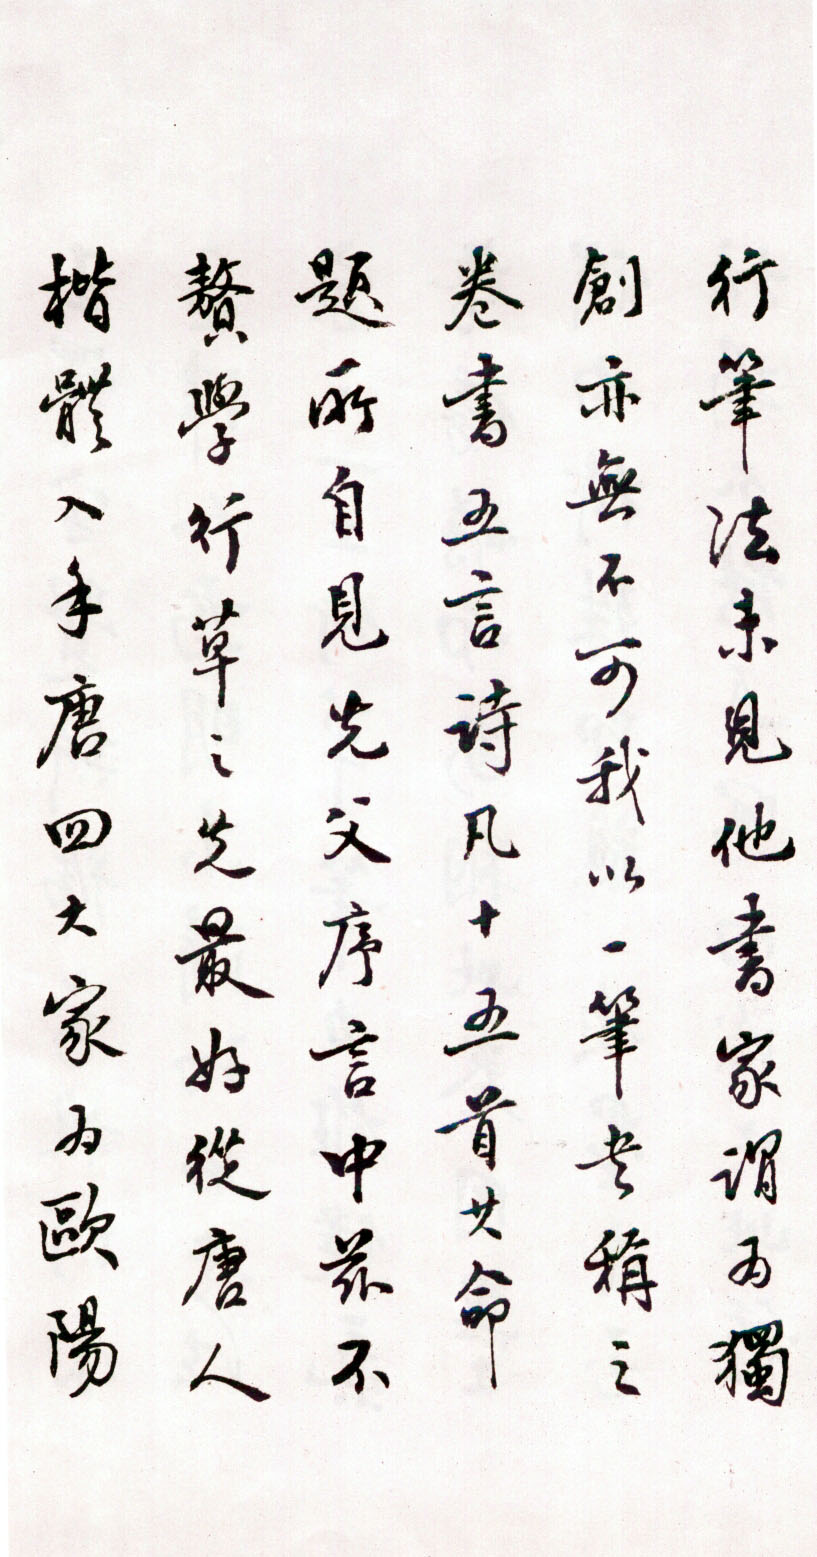 行筆法未見他書家謂為獨
創亦無不可我以一筆書稱之
卷書五言詩凡十五首其命
題所自見先父序言中茲不
贅學行草之先最好從唐人
楷體入手唐四大家為歐陽